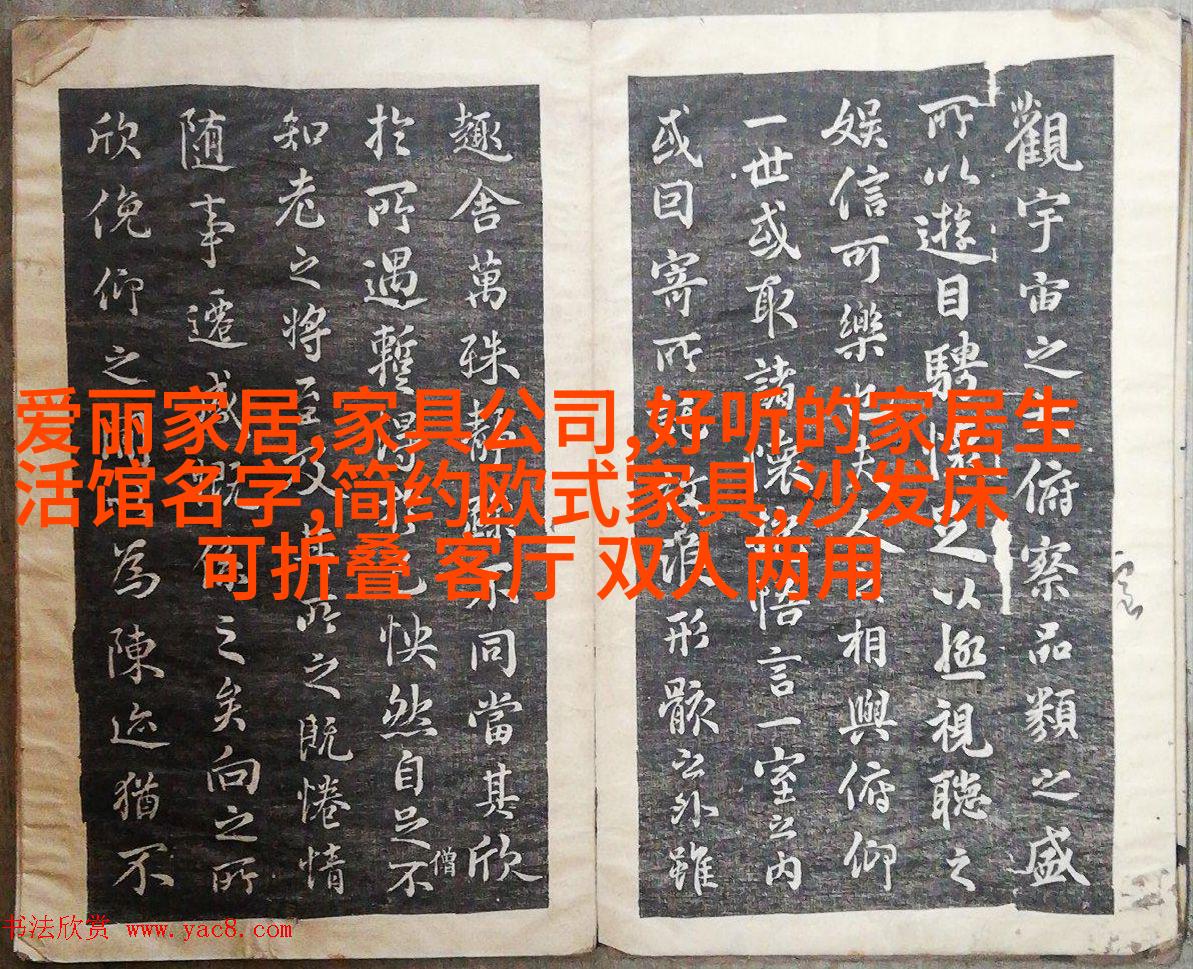 觀宇宙之俯察品類之盛
所以遊目騁懷足以極視聽之
娱信可樂也夫人相與俯仰
一世或取諸懷抱悟言一室之内
或因寄所放浪形骸之外雖
趣舍萬殊靜躁不同當其欣
僧
於所遇暫得己怏然自足不
知老之將至及其所之既惓情
随事遷感慨係之矣向之所
欣俛仰之間為陳迹猶不
爱丽家居,家具公司,好听的家居生
活馆名字,简约欧式家具,沙发床
可折叠 客厅 双人两用
书法欣赏 www.yac8.com